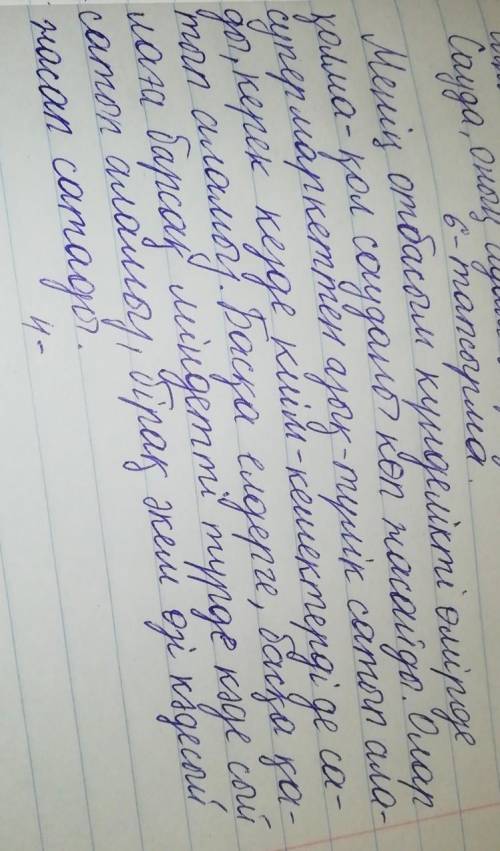 Сауда, оның
6-тапсырма.
Менің отбасым күнделікті өмірде
қолма-қол сауданы көп жасайды. Олар
супермаркеттен азық-түлік сатып ала-
ды, керек кезде киім-кешектерді де са-
тып аламыз. Басқа елдерге, басқа қа-
лаға барсақ міндетті түрде кәде сый
сатып аламыз, бірақ әкем өзі кәдесый
жасап сатады.